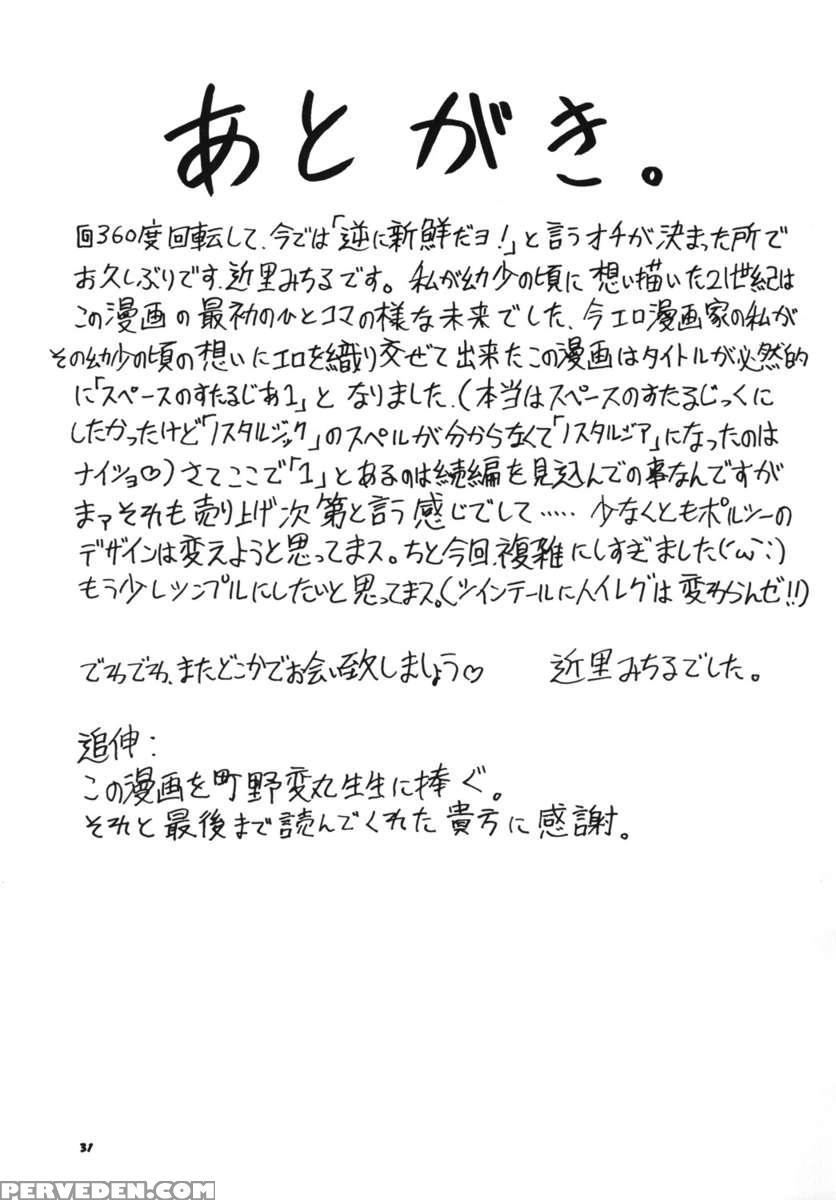 あとがき。
回360度回転して、今では「逆に新鮮だヨ!」と言うオチが決まった所で
お久しぶりです、近里みちるです。私が幼少の頃に想い描いた21世紀は
この漫画の最初のひとコマの様な未来でした、今エロ漫画家の私が
その幼少の頃の想いにエロを織り交ぜて出来たこの漫画はタイトルが必然的
に「スペースのすたるじあ1」となりました、(本当はスペースのすたるじっくに
したかったけど「ノスタルジック」のスペルが分からなくて「ノスタルジア」になったのは
ナイショ♡)さてここで「1」とあるのは続編を見込んでの事なんですが
まァそれも売り上げ次第と言う感じでして……少なくともポルシーの
デザインは変えようと思ってまス。ちと今回、複雑にしすぎました(´ω`;)
もう少しシンプルにしたいと思ってまス。(ツインテールにハイレグは変わらんゼ!!)
でわでわ、またどこかでお会い致しましょう♡ 近里みちるでした。
追伸:
この漫画を町野変丸生生に捧ぐ。
それと最後まで読んでくれた貴方に感謝。
31
PERVEDEN.COM